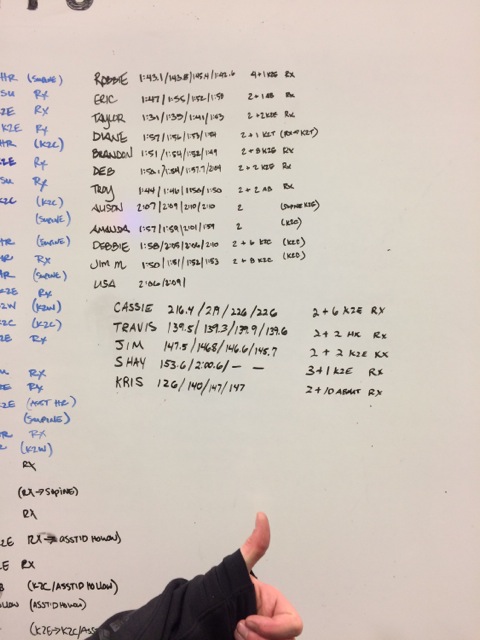 HR (SUPINE)
SU RX
K2E RX
K2E RX
HR (K2C)
K2E RX
SU RX
K2C (K2C)
(SUPINE)
HR (SUPINE)
HR RX
AR (SUPINE)
K2E RX
K2W (K2W)
K2C (K2C)
2E RX
RX
RX
K2E (ASST HR)
(SUPINE)
HR RX
(K2W)
RX
(RX→SUPINE)
RX
K2E RX→ASSTID HOLLOW)
E RX
(K2C/ASSTID HOLLOW)
LLOW (ASSTID HOLLOW)
(K2E→K2C/ASS
ROBBIE 1:43.1/143.8/145.4/1:42.6 4+1 K2E RX
ERIC 1:47/1:55/1:52/1:58 2+1 AB RX
TAYLOR 1:31/1:35/1:41/1:43 2+2 K2E RX
DIANE 1:57/1:56/1:53/1:54 2+1 K2T (RX→K2T)
BRANDON 1:51/1:54/1:52/1:49 2+8 K2E RX
DEB 1:50.1/1:54/1:57.7/2:04 2+2 K2E RX
TROY 1:44/1:46/1:50/1:50 2+2 AB RX
ALISON 2:07/2:09/2:10/2:10 2 (SUPINE K2E)
AMANDA 1:57/1:59/2:01/1:59 2 (K2C)
DEBBIE 1:58/2:05/2:06/2:10 2+6 K2C (K2C)
JIM M 1:50/1:51/1:52/1:53 2+8 K2C (K2C)
LISA 2:06/2:09/
CASSIE 216.4/219/226/226 2+6 K2E RX
TRAVIS 139.5/139.3/139.9/139.6 2+2 HR RX
JIM 147.5/146.8/146.6/145.7 2+2 K2E RX
SHAY 153.6/2:00.6/–– 3+1 K2E RX
KRIS 126/140/147/147 2+10 ABMAT RX